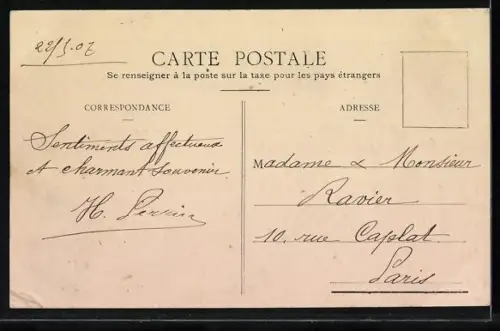 22/5.07
CARTE POSTALE
Se renseigner à la poste sur la taxe pour les pays étrangers
CORRESPONDANCE
ADRESSE
Sentiments affectueux
et charmant souvenir
H. Perrier
Madame & Monsieur
Ravier
10, rue Caplat
Paris